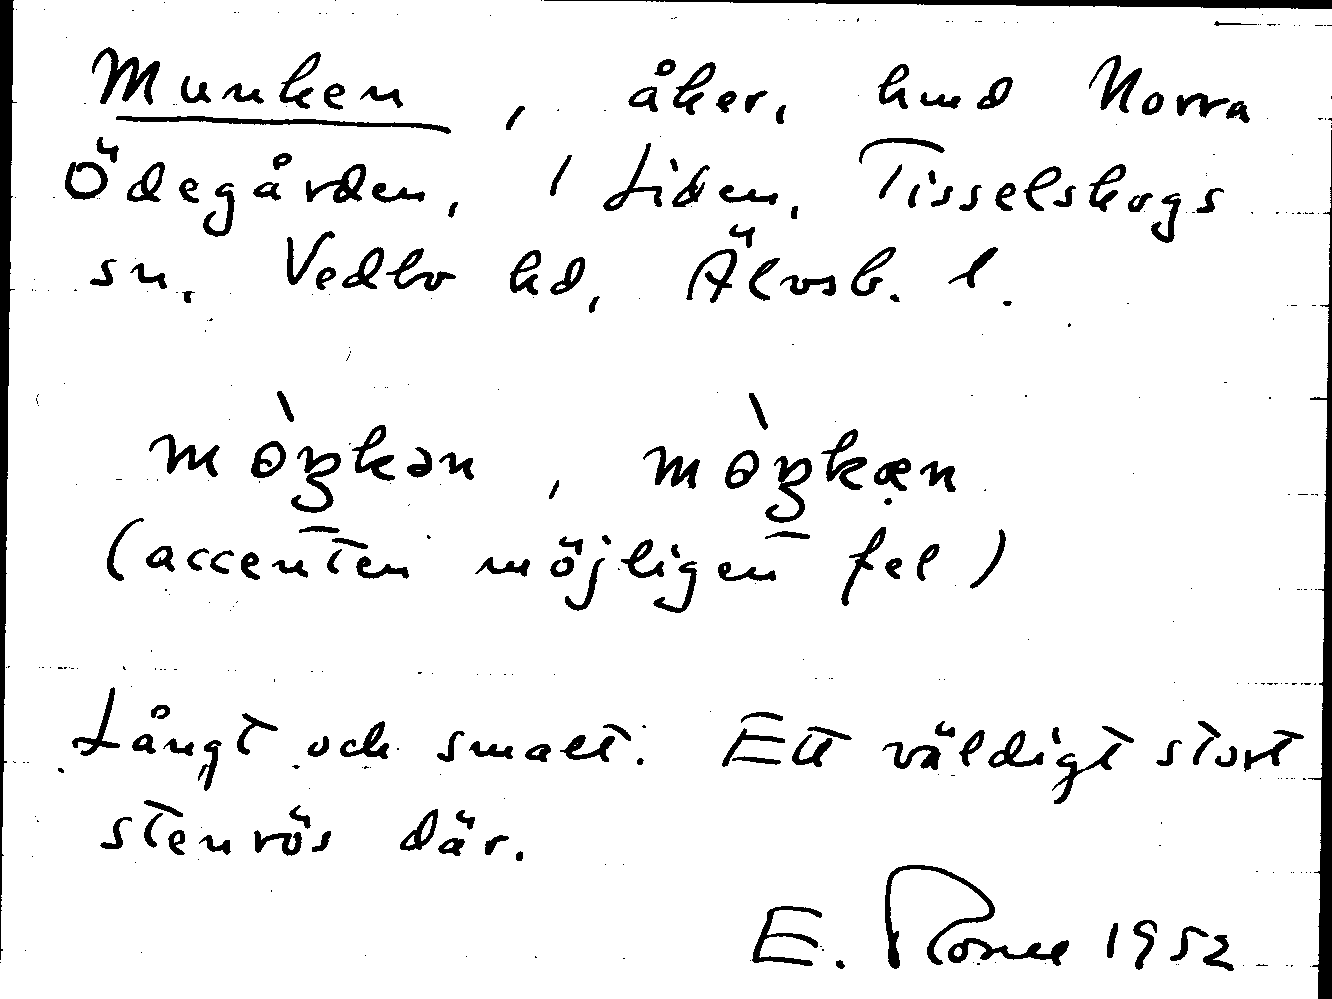 Munken, åker, hmd Norra
Ödegården, 1 Liden, Tisselskogs
sn. Vedbo hd, Älvsb. l.
mòŋkən, mòŋkæn
(accenten möjligen fel)
Långt och smalt. Ett väldigt stort
stenrös där.
E. 1952